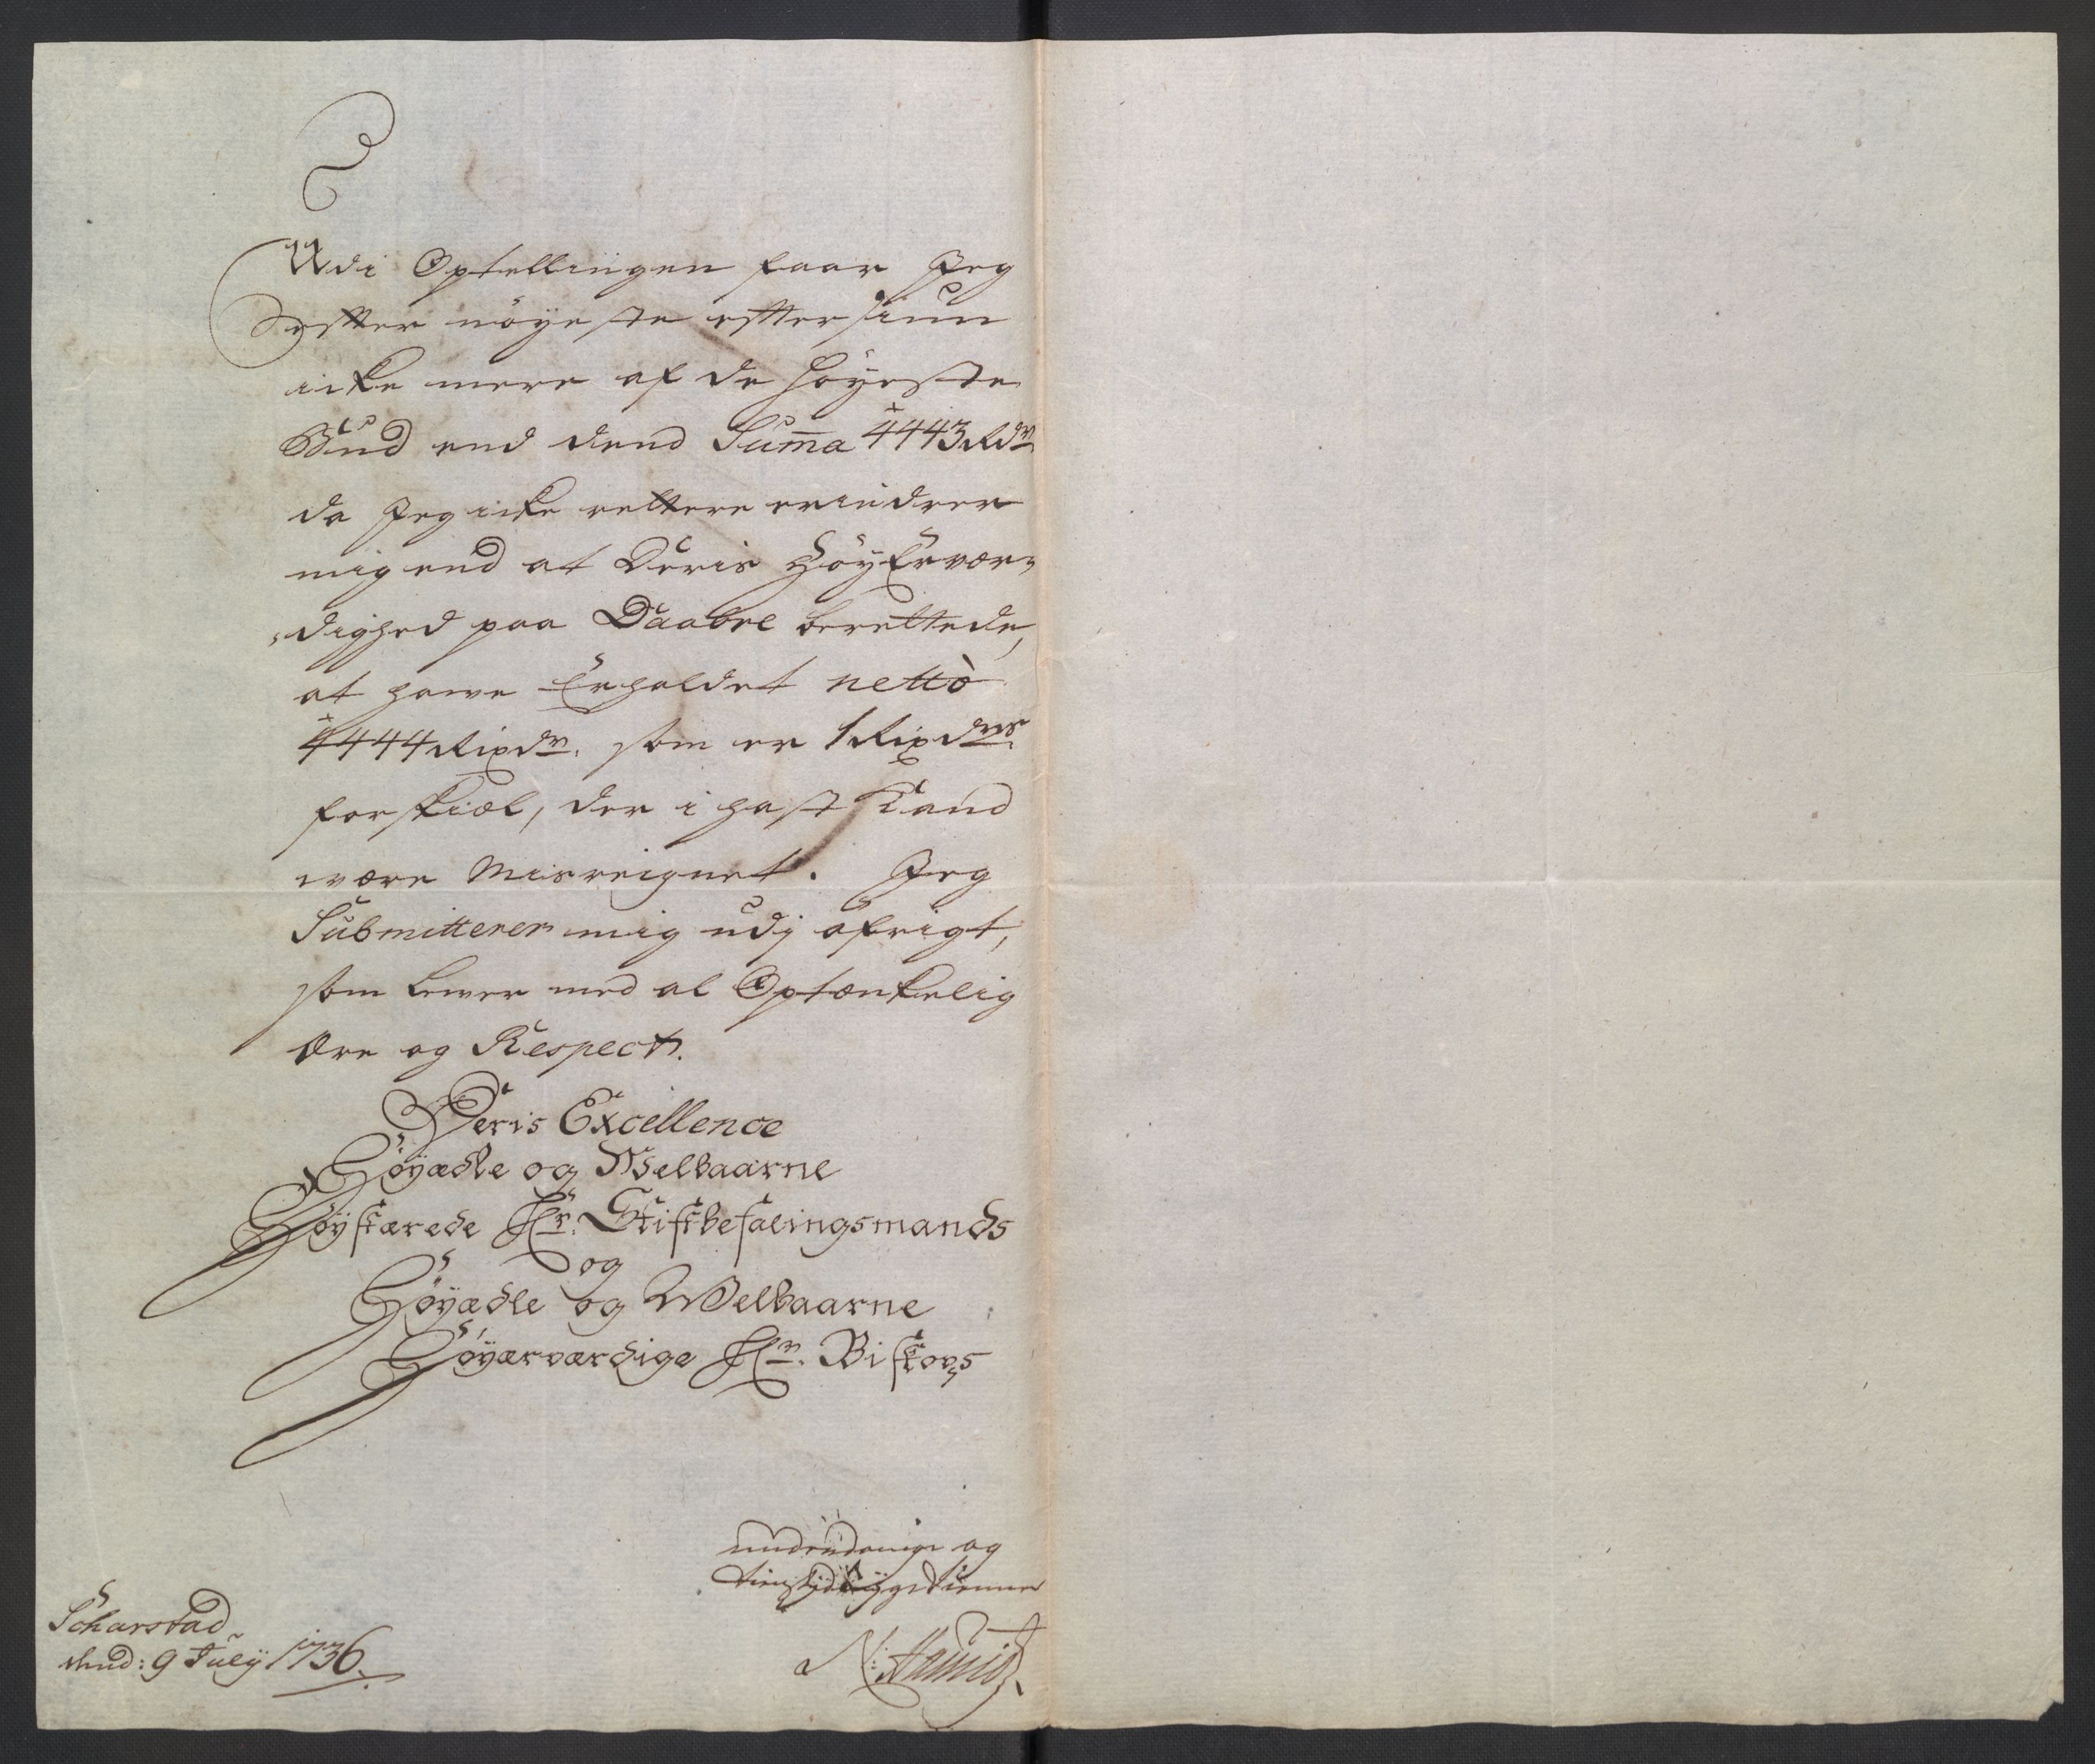 Udi Optellingen faar Jeg
efter nöyeste eftersiun
icke mere af de höyeste
Bud end dend Suma 4443 Rdr
da Jeg icke rettere erindrer
mig end at Deris HöyErvær-
dighed paa Daabel berettede,
at hawe Erholdet nettò
4444 Rixdr. som er 1 Rixdrs
forskiæl, der i hast Kand
være Misreignet. Jeg
Submitterer mig udj öfrigt,
som lever med al Optænkelig
Ære og Respect.
Deris Excellence
Höyædle og Welbaarne
Höystærede Hr. Stiftbefalingsmands
og
Höyædle og Welbaarne
Höyærværdige Hr. Biskops
underdanige og
tienere
N:
Scharstad
dend: 9 July 1736.